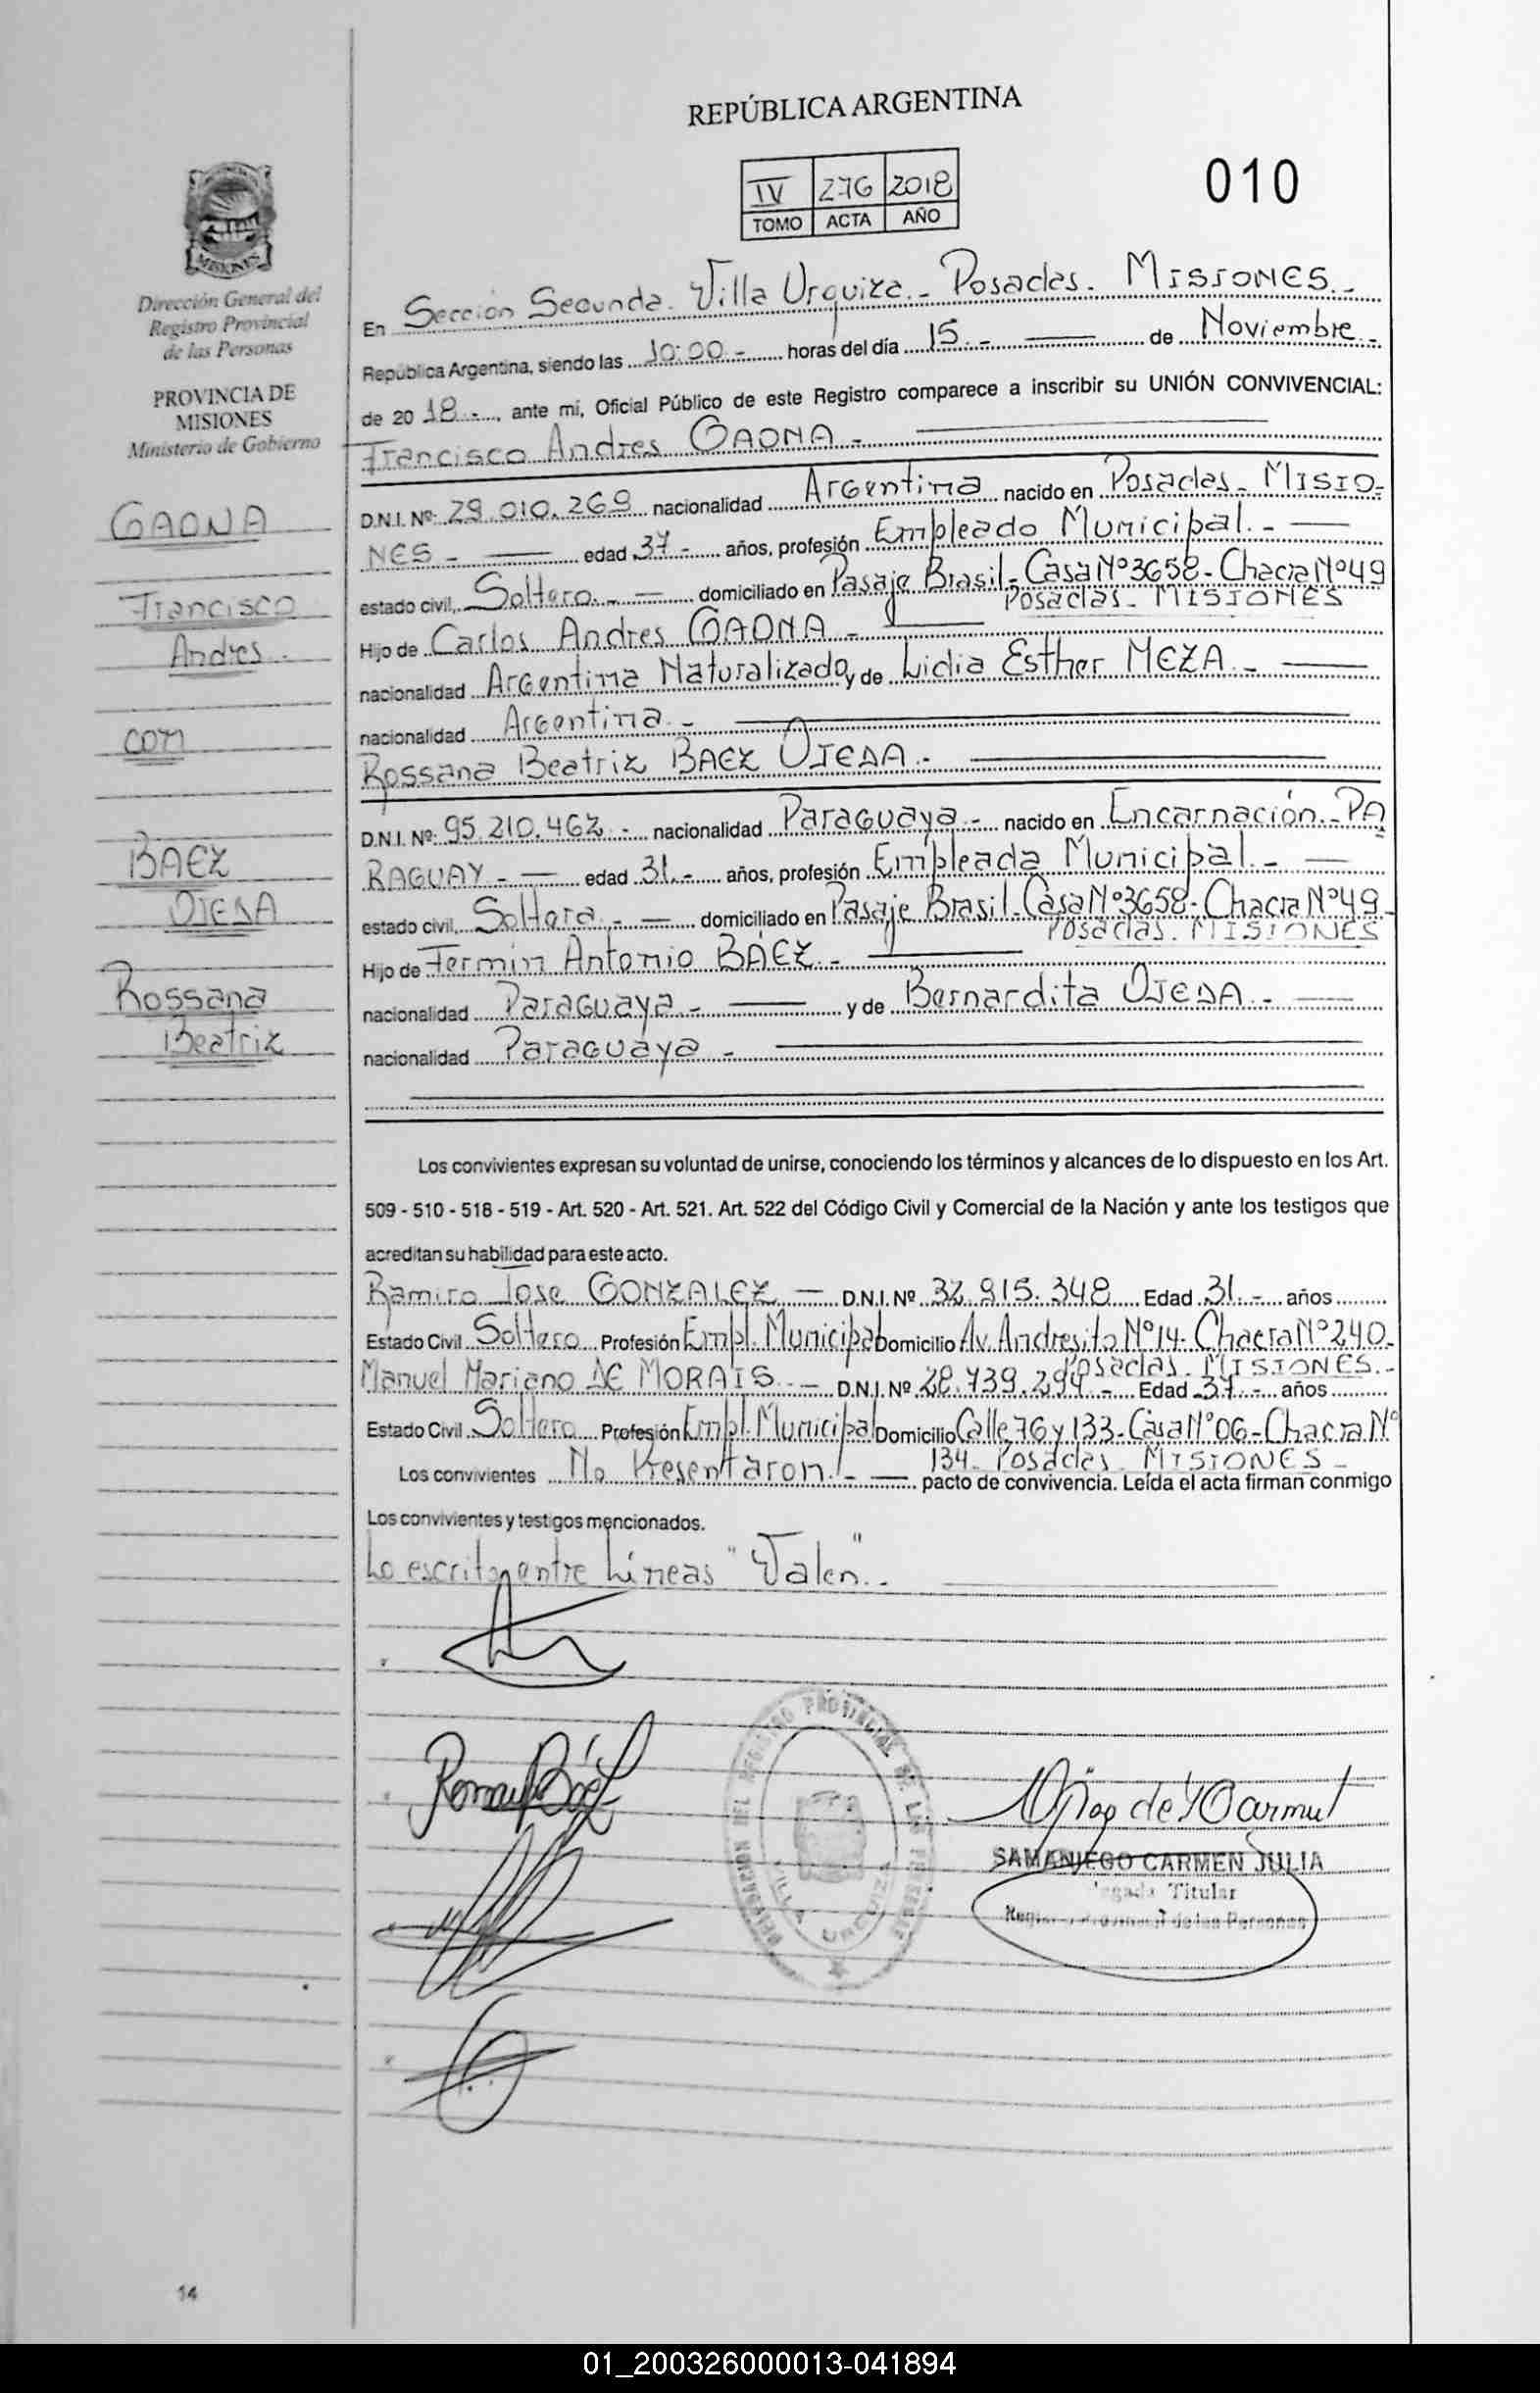 REPÚBLICA ARGENTINA
010
IV 276 2018
TOMO ACTA AÑO
MISIONES
Dirección General del
Registro Provincial
de las Personas
PROVINCIA DE
MISIONES
Ministerio de Gobierno
GAONA
Francisco
Andres.
con
BAEZ
OJEDA
Rossana
Beatriz
En Sección Segunda. Villa Urquiza.- Posadas. MISIONES.-
República Argentina, siendo las 10:00.- horas del día 15.- de Noviembre.-
de 2018.-, ante mí, Oficial Público de este Registro comparece a inscribir su UNIÓN CONVIVENCIAL:
Francisco Andres GAONA.-
D.N.I. Nº 29.010.269 nacionalidad Argentina nacido en Posadas- MISIO-
NES - edad 37.- años, profesión Empleado Municipal.-
estado civil, Soltero.- domiciliado en Pasaje Brasil- Casa Nº3658- Chacra Nº49
Posadas- MISIONES
Hijo de Carlos Andres GAONA -
nacionalidad Argentina Naturalizado y de Lidia Esther MEZA.-
nacionalidad Argentina.-
Rossana Beatriz BAEZ OJEDA.-
D.N.I. Nº 95.210.462.- nacionalidad Paraguaya.- nacido en Encarnación.- PA
RAGUAY - edad 31.- años, profesión Empleada Municipal.-
estado civil, Soltera.- domiciliado en Pasaje Brasil- Casa Nº3658- Chacra Nº49-
Posadas. MISIONES
Hijo de Fermín Antonio BÁEZ.-
nacionalidad Paraguaya.- y de Bernardita OJEDA.-
nacionalidad Paraguaya -
Los convivientes expresan su voluntad de unirse, conociendo los términos y alcances de lo dispuesto en los Art.
509 - 510 - 518 - 519 - Art. 520 - Art. 521. Art. 522 del Código Civil y Comercial de la Nación y ante los testigos que
acreditan su habilidad para este acto.
Ramiro Jose GONZALEZ - D.N.I. Nº 32.915.348 Edad 31.- años
Estado Civil Soltero Profesión Empl. Municipal Domicilio Av. Andresito Nº14- Chacra Nº240-
Posadas. MISIONES.-
Manuel Mariano DE MORAIS.- D.N.I. Nº 28.739.294.- Edad 37.- años
Estado Civil Soltero Profesión Empl. Municipal Domicilio Calle 76 y 133- Casa Nº06- Chacra Nº
134- Posadas. MISIONES-
Los convivientes No Presentaron.- pacto de convivencia. Leída el acta firman conmigo
Los convivientes y testigos mencionados.
Lo escrito entre Líneas "Valen".-
DELEGACION DEL REGISTRO PROVINCIAL DE LAS PERSONAS
VILLA URQUIZA
SAMANIEGO CARMEN JULIA
Titular
Registro Provincial de las Personas
14
01_200326000013-041894